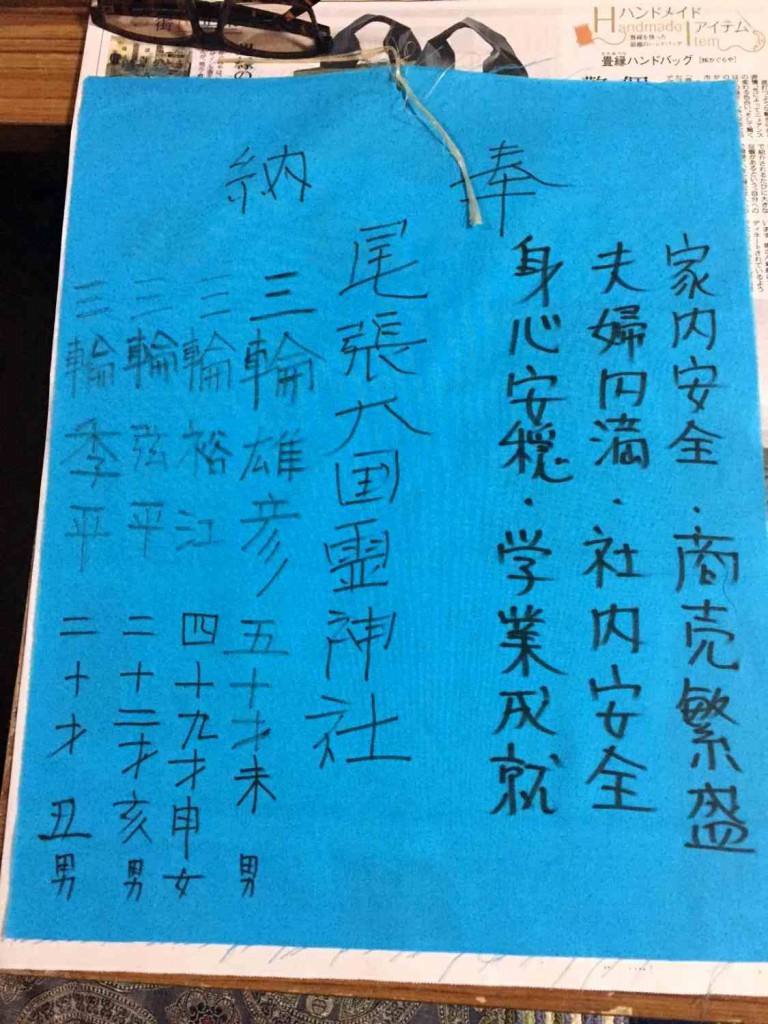 奉納
家内安全・商売繁盛
夫婦円満・社内安全
身心安穏・学業成就
尾張大国霊神社
三輪雄彦 五十才未 男
三輪裕江 四十九才申女
三輪弦平 二十二才亥男
三輪季平 二十才 丑男
ハンドメイド
Handmade アイテム
Item
畳縁ハンドバッグ